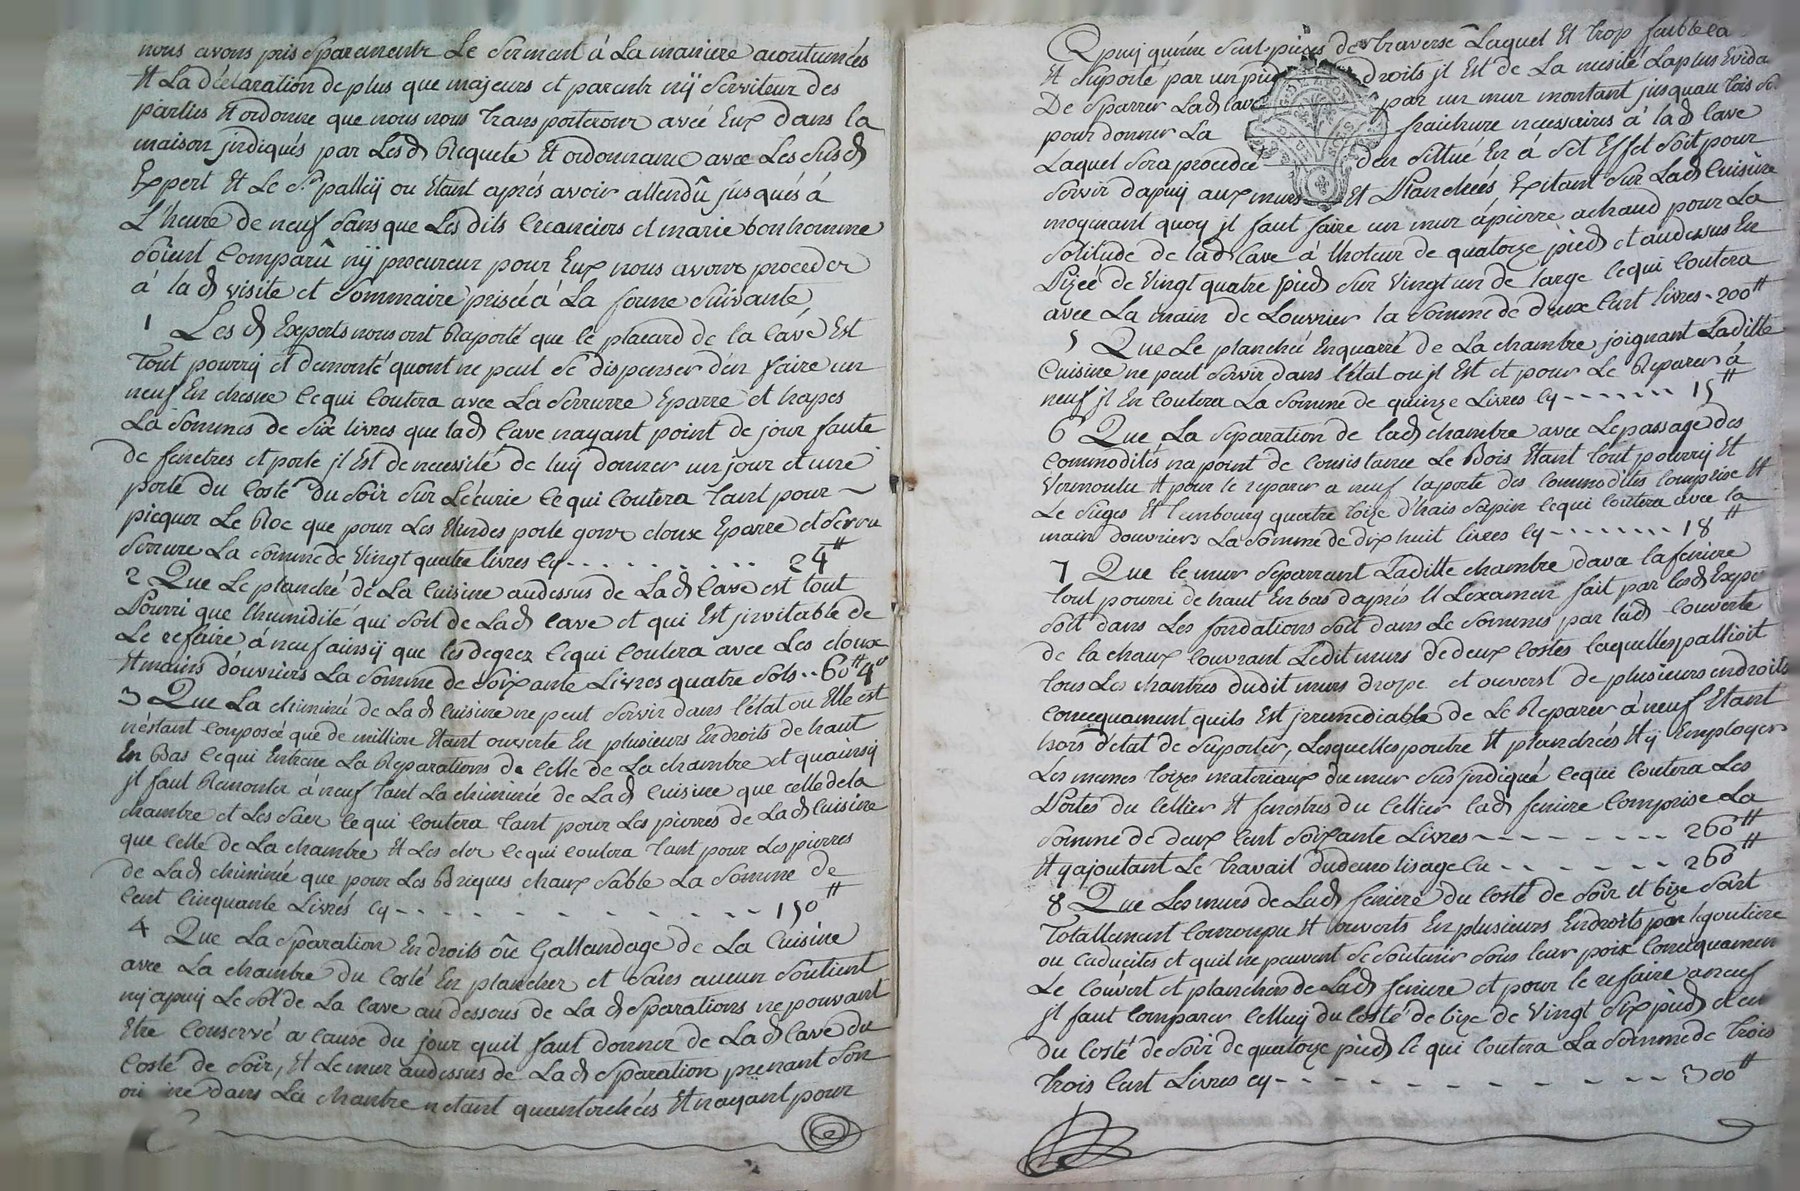 nous avons pris sparement Le serment à La maniere acoutumées
Et La déclaration de plus que majeurs et parents nÿ serviteur des
parties Et ordonne que nous nous transporterons avec Eux dans la
maison jndiqués par Lesd Requete Et ordonnance avec Les susd
Expert Et Le Sr palleÿ ou Etant aprés avoir attendû jusqués à
L'heure de neuf sans que Les dits Creanciers et marie bonhomme
soient Comparû nÿ procureur pour Eux nous avons proceder
à lad visite et sommaire prisée à La forme suivante
1 Les d Experts nous ont Raporté que le placard de la Cave Est
tout pourrÿ et demonté quont ne peut se dispenser d'en faire un
neuf En chesne ce qui Coutera avec La serrurre Eparre et trapes
La sommes de six livres que lad Cave nayant point de jour faute
de fenetres et porte jl Est de necessité de luÿ donner un jour et une
porte du Costé du soir sur L'écurie ce qui Coutera tant pour
picquer Le Roc que pour Les Etendes porte gons cloux Eparre et Verou
serrure La somme de Vingt quatre livres Cy - - - - - - - - - 24 tt
2 Que Le planché de La Cuisine audessus de Lad Cave est tout
Pourri que lhumidité qui sort de Lad cave et qui Est jnvitable de
Le refaire à neuf ainsÿ que les degrez ce qui Coutera avec Les cloux
Et mains d'ouvriers La somme de soixante Livres quatre sols .. 60 tt 4 s
3 Que La chiminé de Lad Cuisine ne peut servir dans l'état ou Elle est
n'estant Composée que de million Etant ouverte En plusieurs Endroits de haut
En Bas ce qui Entrene La Reparations de Celle de La chambre et quainsy
jl faut Remonter à neuf tant La chiminée de Lad Cuisine que celle de la
chambre et Les Saer ce qui Coutera tant pour Les pierres de Lad Cuisine
que Celle de La chambre Et Les cler ce qui Coutera tant pour Les pierres
de Lad chiminée que pour Les Briques chaux sable La somme de
Cent Cinquante Livres Cy - - - - - - - - - - - - 150 tt
4 Que La Sparation En droits oû Gallandage de La Cuisine
avec La chambre du Costé En plancher et sans aucun soutient
ny apuÿ Le sol de La Cave au dessous de La d Sparations ne pouvant
Etre Conservé a Cause du jour quil faut donner de Lad Cave du
Costé de soir, Et Le mur audessus de Lad Sparation prenant son
dans La chambre netant quantrechées Et nayant pour
apuÿ quune seul pièce de traverse Laquel Et trop faible ca
Et suporté par un pied droits jl Est de La nesité La plus Evida
De Sparrer Lad Cave par un mur montant jusquau tois
pour donner La fraichure necessaires à lad Cave
Laquel sera procedée den sittué En a set Effet soit pour
servir dapuÿ aux murs Et Planchées Exitant sur Lad Cuisine
moyenant quoy jl faut faire un mur àpierre achaud pour La
solitude de lad Cave à lhoteur de quatorze pieds et audessus En
Pizée de Vingt quatre pieds sur Vingt un de large ce qui Coutera
avec La main de Louvrier la somme de deux Cent livres - 200 tt
5 Que Le planchée Enquarré de La chambre joignant Laditte
Cuisine ne peut servir dans l'état ou jl Est et pour Le Reparer à
neuf jl En Coutera La somme de quinze Livres Cy - - - - - - 15 tt
6 Que La separation de lad chambre avec Le passage des
Commodités na point de Consistance Le Bois Etant tout pourrÿ Et
Vermoulu Et pour le reparer a neuf la porte des Commodités Comprise Et
Le sieges Et quatre toize d'hais sapin ce qui Coutera avec la
main douvriers La somme de dix huit livres Cy - - - - - - - 18 tt
7 Que le mur separrant Laditte chambre dava la feniere
tout pourri de haut En bas d'aprés Et Lexamen fait par lesd Expe
soit dans Les fondations soit dans Le sommes par lad Couverte
de la chaux Couvrant Ledit murs de deux Costés laquelles pallioit
tous Les chantres dudit murs et ouverst de plusieurs endroits
Concequament quils Est jrremediable de Le Reparer à neuf Etant
hors d'état de suporter, Lesquelles poutre Et planchées Et y Employer
Les memes toizes materiaux du mur sus jndiqué ce qui Coutera Les
Portes du Cellier Et fenestres du Cellier lad feniere Comprise La
somme de deux Cent soixante Livres - - - - - - - 260 tt
Et y ajoutant Le travail du demolisage Cy - - - - - - 260 tt
8 Que Les murs de Lad feniere du Costé de soir et bize sont
totallement Corrompu Et Couverts En plusieurs Endroits par Egoutiere
ou Caducités et quil ne peuvent se soutenir sous leur poix Concequamen
Le Couvert et planchers de Lad feniere et pour le refaire a neuf
jl faut Comparer Celluÿ du Costé de bize de Vingt six pieds et En
du Costé de soir de quatorze pieds ce qui Coutera La somme de trois
trois Cent Livres Cy - - - - - - - - - - - - 300 tt